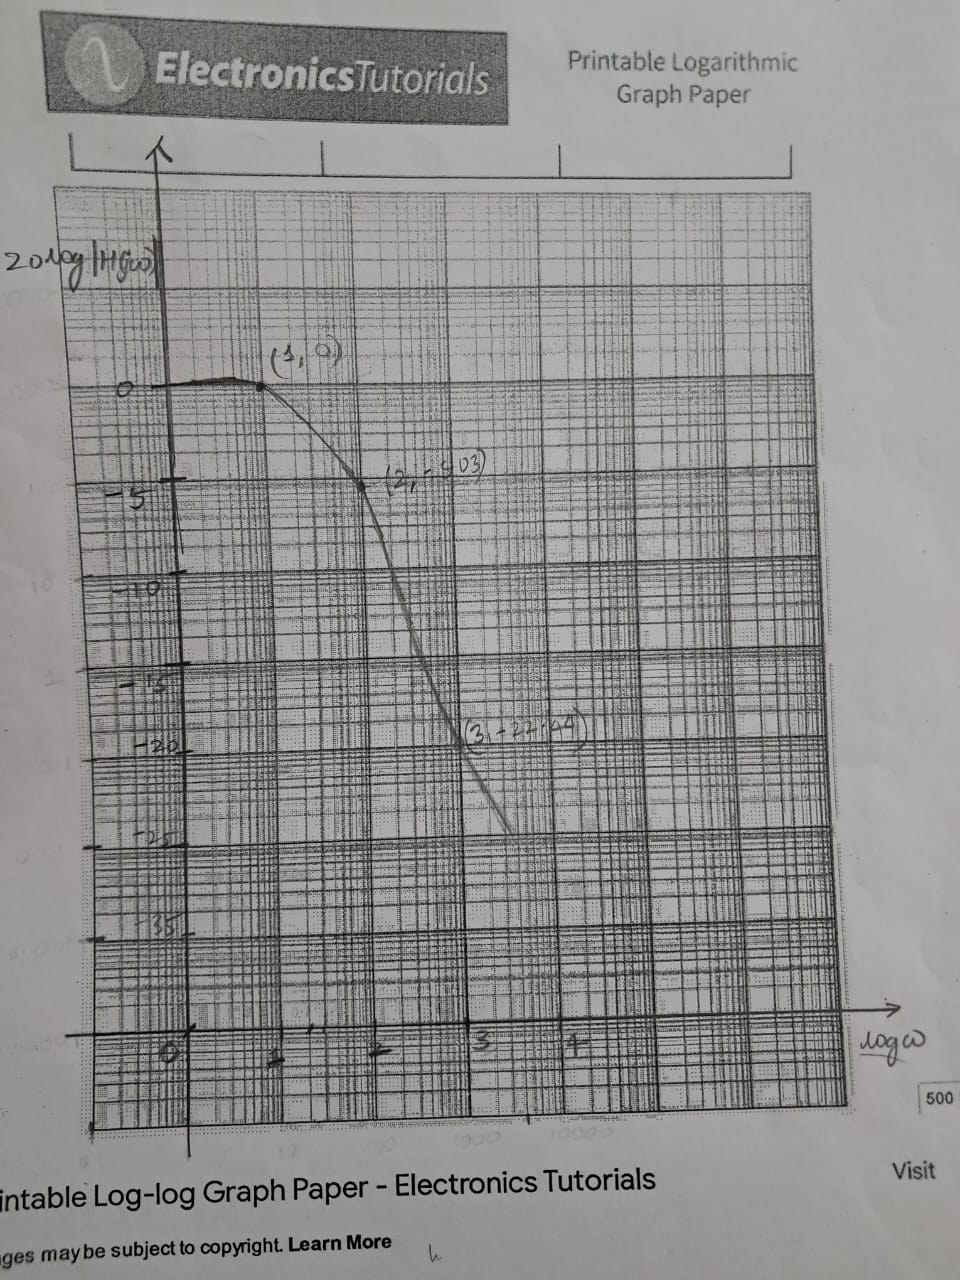 ElectronicsTutorials
Printable Logarithmic
Graph Paper
20 log |H(jω)|
(1, 0)
0
(2, -5.03)
-5
-10
-15
(3, -22.44)
-20
-25
-35
0 1 2 3 4
log ω
500
Visit
intable Log-log Graph Paper - Electronics Tutorials
ges may be subject to copyright. Learn More
h